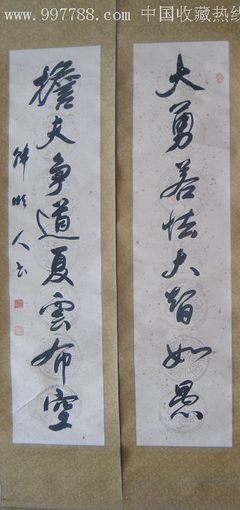 www.997788.com 中国收藏热线
大勇若怯大智如愚
担夫争道夏雲布空
人书